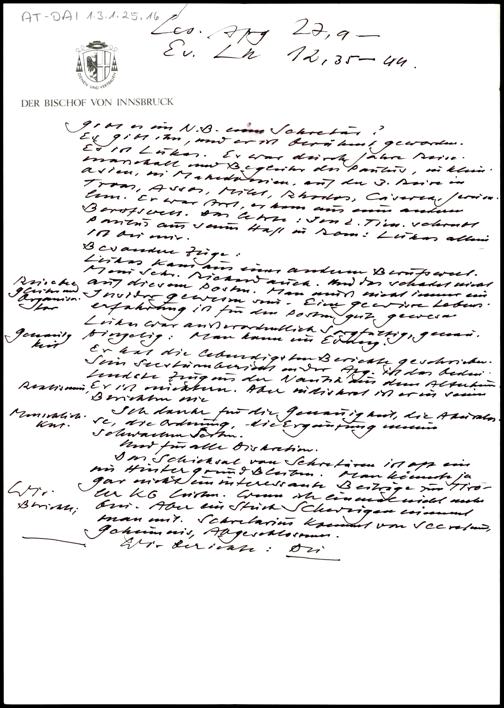 AT-DAI 1.3.1.25.16
Les. Apg 27,9 –
Ev. Lk 12,35 – 44.
DER BISCHOF VON INNSBRUCK
Gibt es im N.B. einen Sekretär?
Es gibt ihn, und er ist berühmt geworden.
Es ist Lukas. Er war durch Jahre Reise-
marschall und Begleiter des Paulus, in Klein-
asien, in Makedonien, auf der 3. Reise in
Troas, Assos, Milet, Rhodos, Cäsarea, Jerusa-
lem. Er war Arzt, er kam aus einem andern
Berufswelt. Das letzte: Im 2. Tim. schreibt
Paulus aus seiner Haft in Rom: Lukas allein
ist bei mir.
Besondere Züge:
Lukas kam aus einer anderen Berufswelt.
Mein Sekr. Richard auch. Und das schadet nicht
auf diesem Posten. Man muß nicht immer ein
Insider gewesen sein. Eine gewisse Lebens-
erfahrung ist für den Posten gut gewesen
Reisebe-
gleiter und
Organisa-
tor
Lukas war außerordentlich sorgfältig, genau.
Genauig-
keit
Man kann im Evang.
Er hat die lebendigsten Berichte geschrieben.
Sein Seesturmbericht in der Apg. ist das bedeu-
tendste Zeugnis der Nautik aus dem Altertum
Realismus
Er ist nüchtern. Aber indiskret ist er in seinen
Berichten nie
Menschlich-
keit.
Ich danke für die Genauigkeit, die
die Ordnung, die Ergänzung meiner
schwachen Seiten.
Und für alle Diskretion.
Das Schicksal von Sekretären ist oft ein
im Hintergrund Bleiben. Man könnte ja
gar nicht uninteressante Beiträge zur Tiro-
ler KG liefern. Wenn ich einmal nicht mehr
bin. Aber ein Stück Schweigen nimmt
man mit. Secretarius kommt von secretum,
Geheimnis, Abgeschlossenes.
Wir-
Berichte;
Wir berichte: